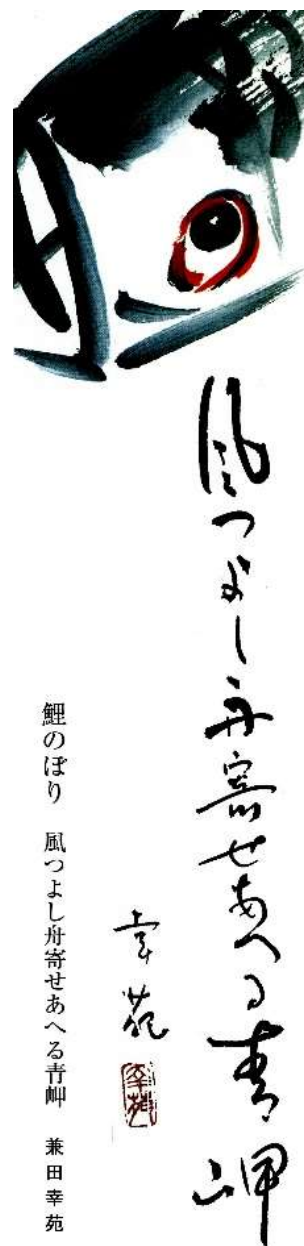 風つよし舟寄せあへる青岬
幸苑
幸苑
鯉のぼり　風つよし舟寄せあへる青岬　兼田幸苑